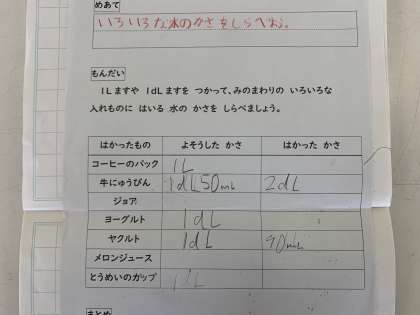 めあて
いろいろな水のかさをしらべよう。
もんだい
1Lますや 1dLますを つかって、みのまわりの いろいろな
入れものに はいる 水の かさを しらべましょう。
はかったもの よそうした かさ はかった かさ
コーヒーのパック 1L
牛にゅうびん 1dL50mL 2dL
ジョア
ヨーグルト 1dL
ヤクルト 1dL 90mL
メロンジュース
とうめいのカップ 1dL
まとめ